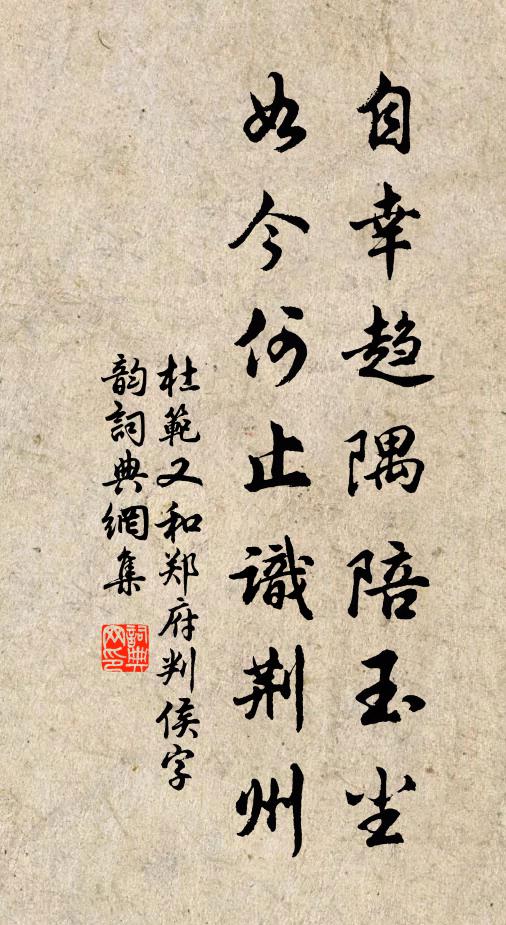 自幸趋隅陪玉尘
如今何止識荆州
杜範又和郑府判侯字
韵詞典網集
詞典网印